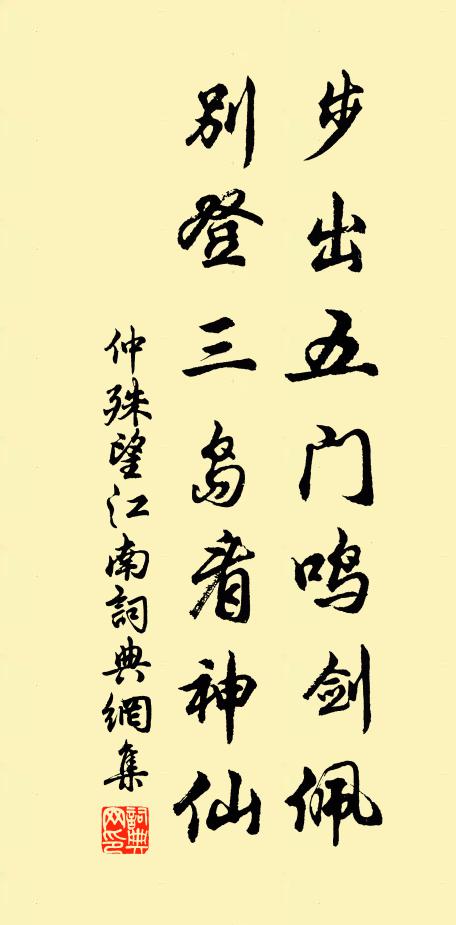 步出五门鸣剑佩
别登三岛看神仙
仲殊望江南詞典網集
詞典网印